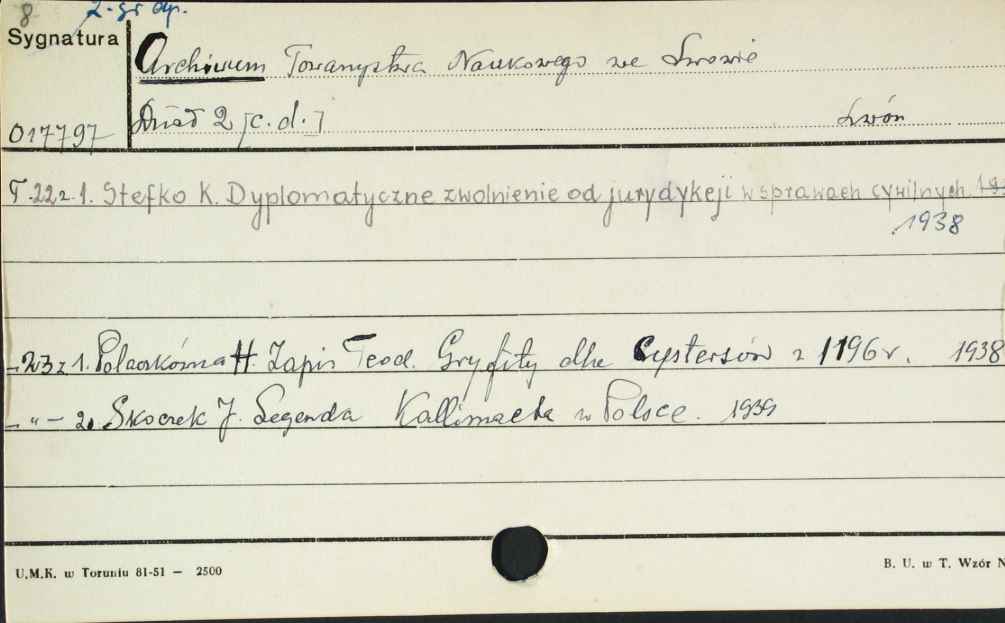 8 2. gr dp.
Sygnatura
Archiwum Towarzystwa Naukowego we Lwowie
017797
Dział 2 [c. d.]
Lwów
T. 22 z. 1. Stefko K. Dyplomatyczne zwolnienie od jurydykcji w sprawach cywilnych. 19
1938
- 23 z 1. Polaczkówna H. Zapis Teod. Gryfity dla Cystersów z 1196 r. 1938
- " - 2. Skoczek J. Legenda Kallimacha w Polsce. 1939
U.M.K. w Toruniu 81-51 — 2500
B. U. w T. Wzór N